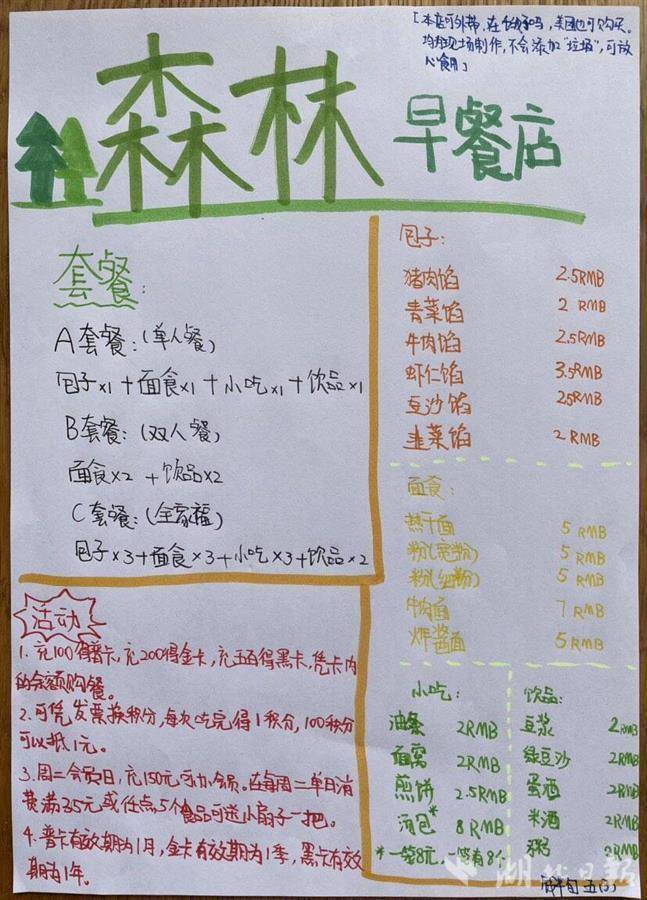 「本店可外带,在饿了吗,美团也可购买。
均为现场制作,不会添加"垃圾",可放
心食用」
森林 早餐店
套餐:
A套餐:(单人餐)
包子×1+面食×1+小吃×1+饮品×1
B套餐:(双人餐)
面食×2+饮品×2
C套餐:(全家福)
包子×3+面食×3+小吃×3+饮品×2
包子:
猪肉馅 2.5RMB
青菜馅 2 RMB
牛肉馅 2.5RMB
虾仁馅 3.5RMB
豆沙馅 25RMB
韭菜馅 2 RMB
面食:
热干面 5 RMB
粉(宽粉) 5 RMB
粉(细粉) 5 RMB
牛肉面 7 RMB
炸酱面 5 RMB
活动
1.充100得普卡,充200得金卡,充五百得黑卡,凭卡内
的余额购餐。
2.可凭发票换积分,每次吃完得1积分,100积分
可以抵1元。
3.周二会员日,充150元可办会员。在每周二单日消
费满35元或任点5个食品可送小扇子一把。
4.普卡有效期为1月,金卡有效期为1季,黑卡有效
期为1年。
小吃:
油条 2RMB
面窝 2RMB
煎饼 2.5RMB
汤包* 8 RMB
*一笼8元,一笼有8个
饮品:
豆浆 2RMB
绿豆沙 2RMB
蛋酒 2RMB
米酒 2RMB
粥 2RMB
湖北日报